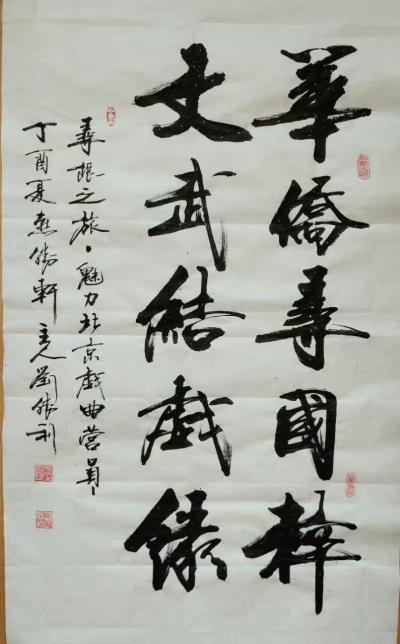 華僑尋國粹
文武結戲緣
尋根之旅·魅力北京戲曲营員
丁酉夏燕勝軒主人劉勝利